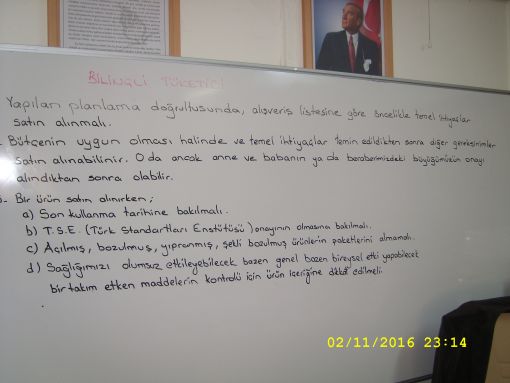 BİLİNÇLİ TÜKETİCİ
Yapılan planlama doğrultusunda, alışveriş listesine göre öncelikle temel ihtiyaçlar
satın alınmalı.
Bütçenin uygun olması halinde ve temel ihtiyaçlar temin edildikten sonra diğer gereksinimler
satın alınabilinir. O da ancak anne ve babanın ya da beraberimizdeki büyüğümüzün onayı
alındıktan sonra olabilir.
- Bir ürün satın alınırken;
a) Son kullanma tarihine bakılmalı.
b) T.S.E. (Türk Standartları Enstütüsü) onayının olmasına bakılmalı.
c) Açılmış, bozulmuş, yıpranmış, şekli bozulmuş ürünlerin paketlerini almamalı.
d) Sağlığımızı olumsuz etkileyebilecek bazen genel bazen bireysel etki yapabilecek
bir takım etken maddelerin kontrolü için ürün içeriğine dikkat edilmeli
02/11/2016 23:14